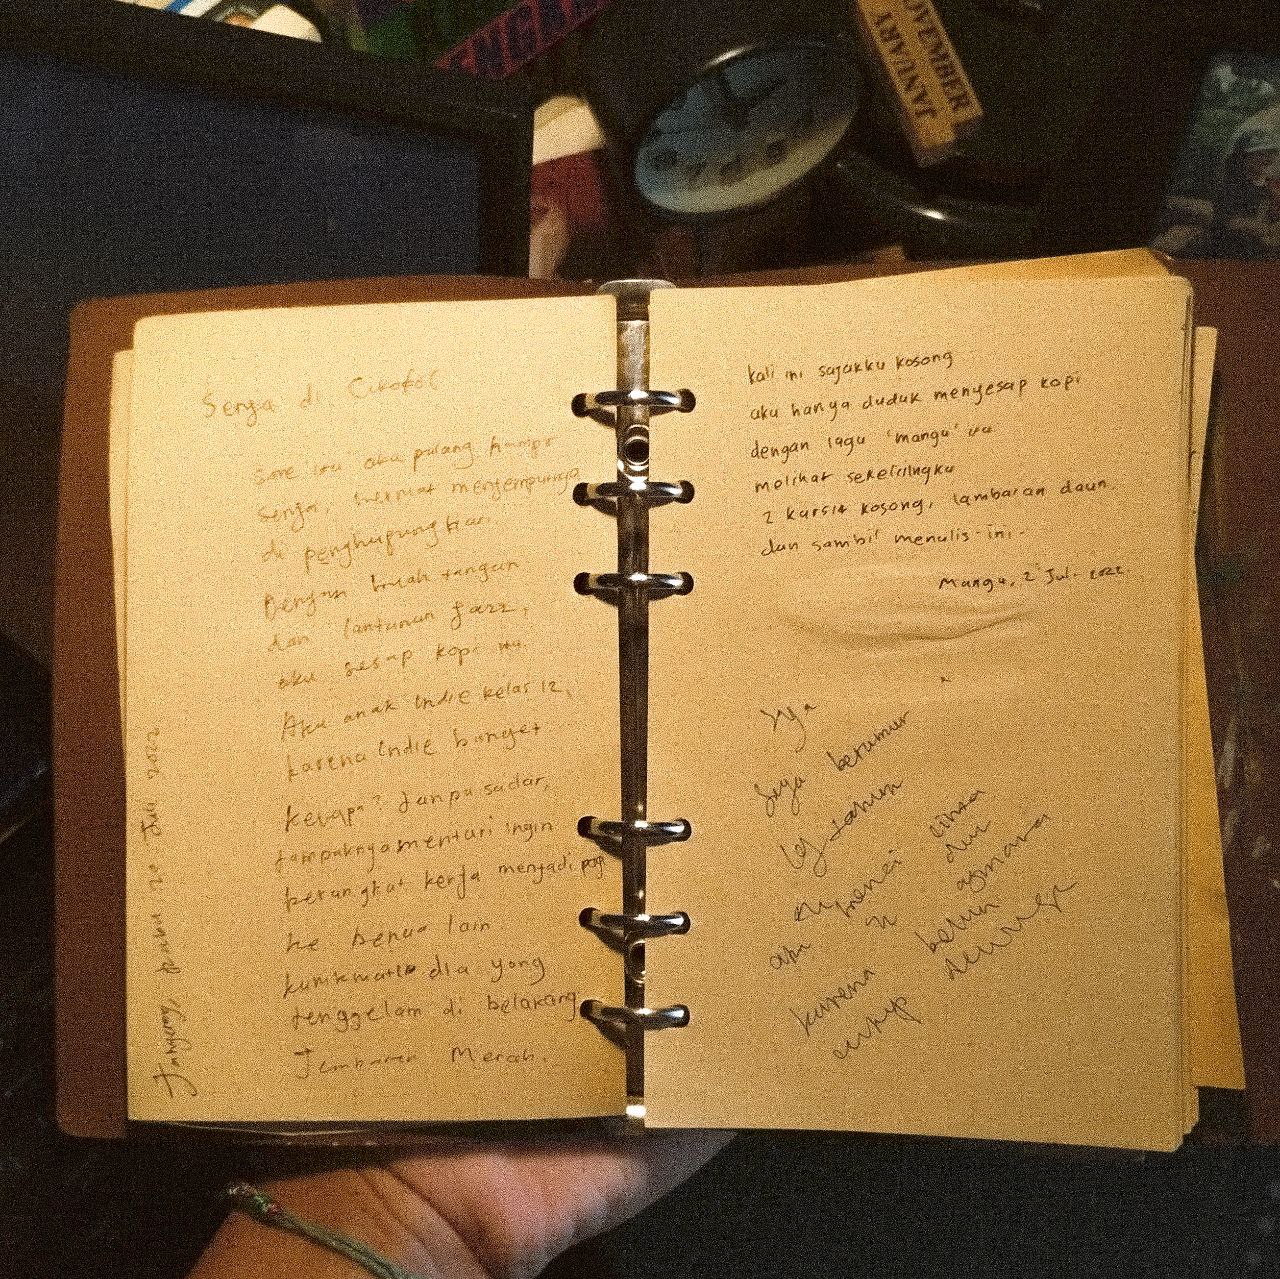 NOVEMBER
JANUARY
Senja di
Sore itu aku pulang hampa
Senja, menjemputnya
di penghujung hari.
Dengan buah tangan
dan lantunan Jazz,
aku sesap kopi itu.
Aku anak Indie kelas 12,
karena Indie banget
kenapa? Tanpa sadar,
tampaknya mentari ingin
berangkat kerja menjadi pagi
ke benua lain
kunikmati dia yang
tenggelam di belakang
Jembatan Merah.
20 Juni 2022
kali ini sajakku kosong
aku hanya duduk menyesap kopi
dengan lagu 'mangu'
melihat sekelilingku
2 kursi kosong, lambaran daun
dan sambil menulis ini.
Mangu, 2 Juli 2022
Saya
Saya berumur
19 tahun
aku cinta
dan agmara
karena belum
cukup